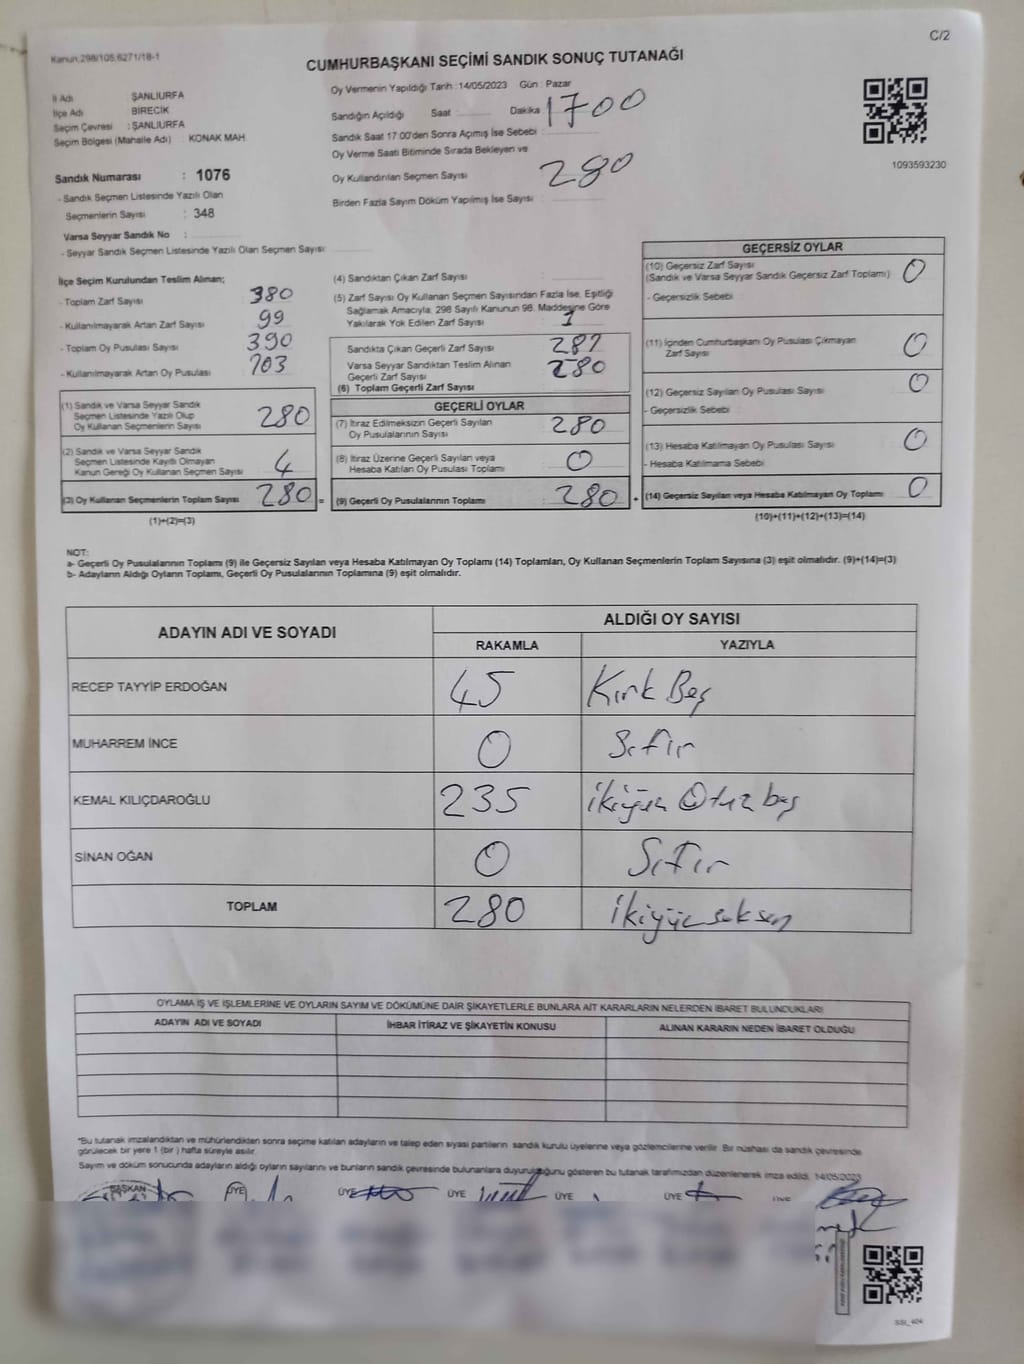 Kanun:298/105,6271/18-1
C/2
CUMHURBAŞKANI SEÇİMİ SANDIK SONUÇ TUTANAĞI
İl Adı ŞANLIURFA
İlçe Adı BİRECİK
Seçim Çevresi : ŞANLIURFA
Seçim Bölgesi (Mahalle Adı) : KONAK MAH.
Sandık Numarası : 1076
- Sandık Seçmen Listesinde Yazılı Olan
Seçmenlerin Sayısı : 348
Varsa Seyyar Sandık No :
- Seyyar Sandık Seçmen Listesinde Yazılı Olan Seçmen Sayısı:
Oy Vermenin Yapıldığı Tarih :14/05/2023 Gün : Pazar
Sandığın Açıldığı Saat : Dakika 1700
Sandık Saat 17:00'den Sonra Açımış İse Sebebi :
Oy Verme Saati Bitiminde Sırada Bekleyen ve
Oy Kullandırılan Seçmen Sayısı 280
Birden Fazla Sayım Döküm Yapılmış İse Sayısı :
1093593230
İlçe Seçim Kurulundan Teslim Alınan;
- Toplam Zarf Sayısı : 380
- Kullanılmayarak Artan Zarf Sayısı : 99
- Toplam Oy Pusulası Sayısı : 390
- Kullanılmayarak Artan Oy Pusulası : 103
(1) Sandık ve Varsa Seyyar Sandık
Seçmen Listesinde Yazılı Olup
Oy Kullanan Seçmenlerin Sayısı 280
(2) Sandık ve Varsa Seyyar Sandık
Seçmen Listesinde Kayıtlı Olmayan
Kanun Gereği Oy Kullanan Seçmen Sayısı 4
(3) Oy Kullanan Seçmenlerin Toplam Sayısı 280 =
(1)+(2)=(3)
(4) Sandıktan Çıkan Zarf Sayısı :
(5) Zarf Sayısı Oy Kullanan Seçmen Sayısından Fazla İse, Eşitliği
Sağlamak Amacıyla; 298 Sayılı Kanunun 98. Maddesine Göre
Yakılarak Yok Edilen Zarf Sayısı : 1
Sandıkta Çıkan Geçerli Zarf Sayısı
Varsa Seyyar Sandıktan Teslim Alınan
Geçerli Zarf Sayısı 280
(6) Toplam Geçerli Zarf Sayısı
GEÇERLİ OYLAR
(7) İtiraz Edilmeksizin Geçerli Sayılan
Oy Pusulalarının Sayısı : 280
(8) İtiraz Üzerine Geçerli Sayılan veya
Hesaba Katılan Oy Pusulası Toplamı : 0
(9) Geçerli Oy Pusulalarının Toplamı : 280 +
GEÇERSİZ OYLAR
(10) Geçersiz Zarf Sayısı
(Sandık ve Varsa Seyyar Sandık Geçersiz Zarf Toplamı) : 0
- Geçersizlik Sebebi
(11) İçinden Cumhurbaşkanı Oy Pusulası Çıkmayan
Zarf Sayısı : 0
(12) Geçersiz Sayılan Oy Pusulası Sayısı : 0
- Geçersizlik Sebebi
(13) Hesaba Katılmayan Oy Pusulası Sayısı : 0
- Hesaba Katılmama Sebebi
(14) Geçersiz Sayılan veya Hesaba Katılmayan Oy Toplamı : 0
(10)+(11)+(12)+(13)=(14)
NOT:
a- Geçerli Oy Pusulalarının Toplamı (9) ile Geçersiz Sayılan veya Hesaba Katılmayan Oy Toplamı (14) Toplamları, Oy Kullanan Seçmenlerin Toplam Sayısına (3) eşit olmalıdır. (9)+(14)=(3)
b- Adayların Aldığı Oyların Toplamı, Geçerli Oy Pusulalarının Toplamına (9) eşit olmalıdır.
ADAYIN ADI VE SOYADI
ALDIĞI OY SAYISI
RAKAMLA YAZIYLA
RECEP TAYYİP ERDOĞAN 45 Kırk Beş
MUHARREM İNCE 0 Sıfır
KEMAL KILIÇDAROĞLU 235 ikiyüz Otuz beş
SİNAN OĞAN 0 Sıfır
TOPLAM 280 ikiyüz seksen
OYLAMA İŞ VE İŞLEMLERİNE VE OYLARIN SAYIM VE DÖKÜMÜNE DAİR ŞİKAYETLERLE BUNLARA AİT KARARLARIN NELERDEN İBARET BULUNDUKLARI
ADAYIN ADI VE SOYADI İHBAR İTİRAZ VE ŞİKAYETİN KONUSU ALINAN KARARIN NEDEN İBARET OLDUĞU
*Bu tutanak imzalandıktan ve mühürlendikten sonra seçime katılan adayların ve talep eden siyasi partilerin sandık kurulu üyelerine veya gözlemcilerine verilir. Bir nüshası da sandık çevresinde
görülecek bir yere 1 (bir) hafta süreyle asılır.
Sayım ve döküm sonucunda adayların aldığı oyların sayılarını ve bunların sandık çevresinde bulunanlara duyurulduğunu gösteren bu tutanak tarafımızdan düzenlenerek imza edildi. 14/05/2023
BAŞKAN ÜYE ÜYE ÜYE ÜYE ÜYE ÜYE
SSI_404